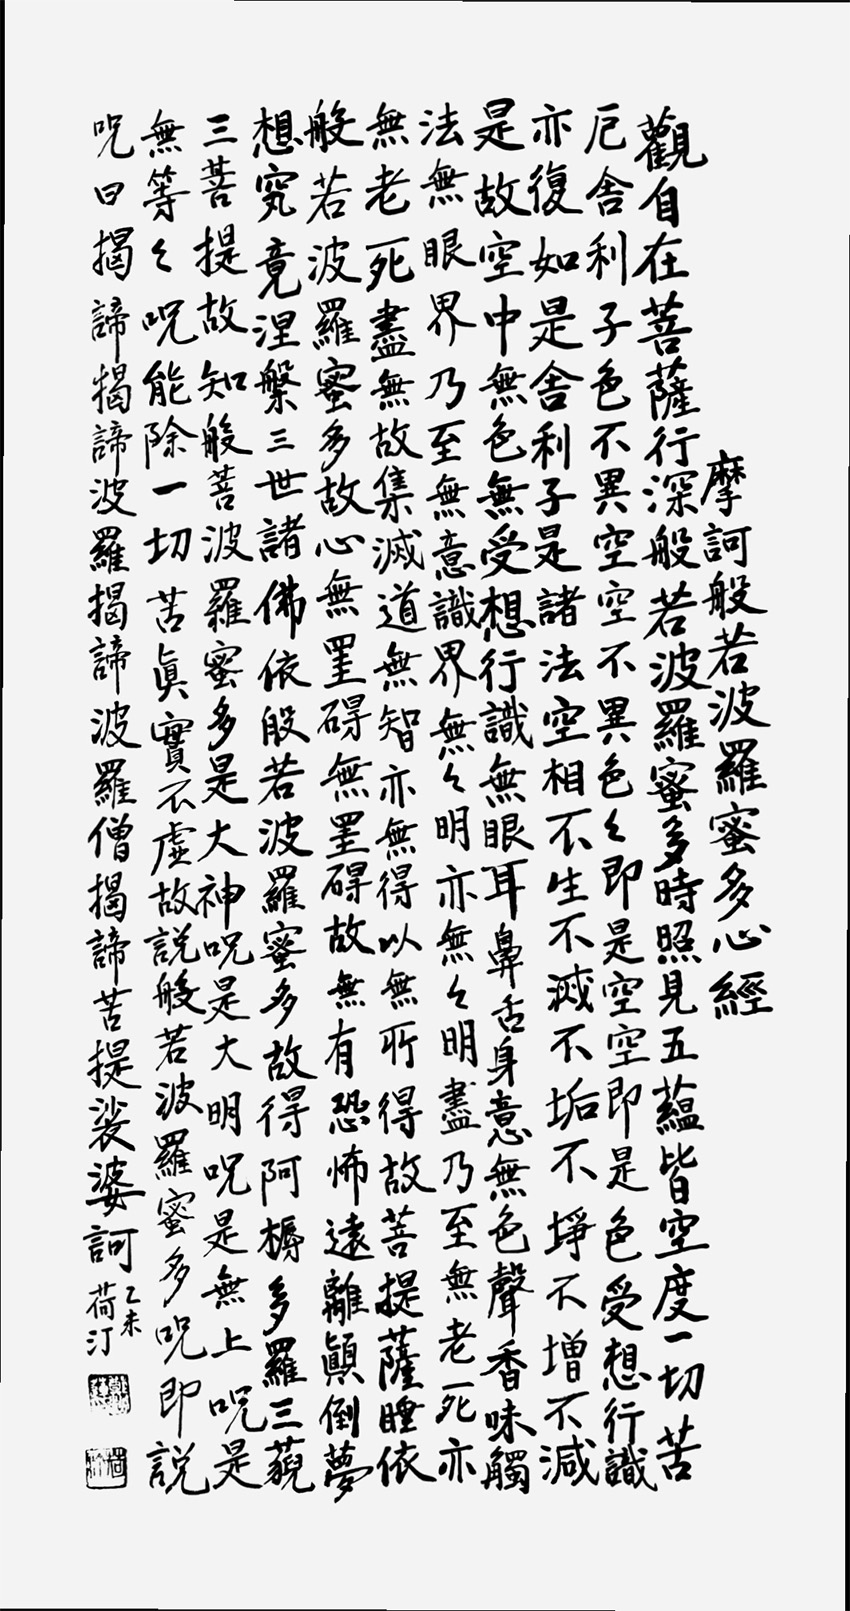 摩訶般若波羅蜜多心經
觀自在菩薩行深般若波羅蜜多時照見五蘊皆空度一切苦
厄舍利子色不異空空不異色々即是空空即是色受想行識
亦復如是舍利子是諸法空相不生不滅不垢不埩不增不減
是故空中無色無受想行識無眼耳鼻舌身意無色聲香味觸
法無眼界乃至無意識界無々明亦無々明盡乃至無老死亦
無老死盡無故集滅道無智亦無得以無所得故菩提薩睡依
般若波羅蜜多故心無罣碍無罣碍故無有恐怖遠離顛倒夢
想究竟涅槃三世諸佛依般若波羅蜜多故得阿槈多羅三藐
三菩提故知般菩波羅蜜多是大神呪是大明呪是無上呪是
無等々呪能除一切苦眞實不虛故説般若波羅蜜多呪即説
呪曰揭諦揭諦波羅揭諦波羅僧揭諦苦提裟婆訶
乙未
荷汀